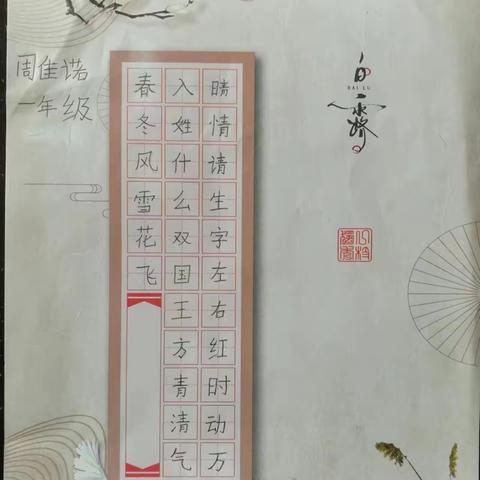 周佳诺
一年级
春冬风雪花飞
入姓什么双国王方青清气
晴情请生字左右红时动万
白露
BAI LU